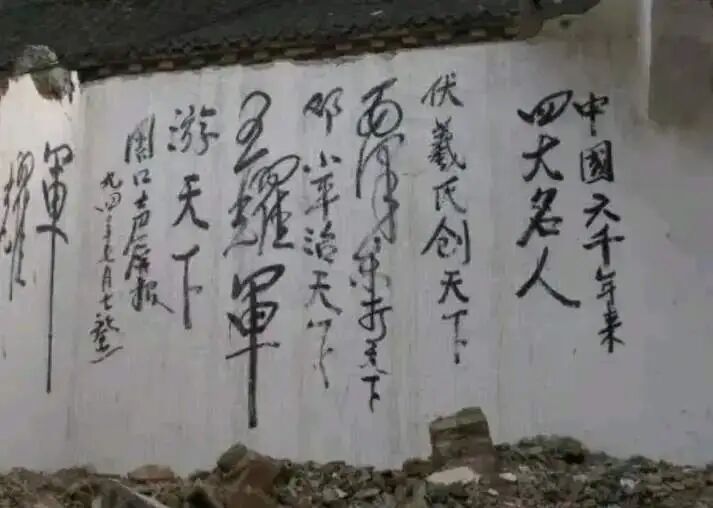 中國六千年来
四大名人
伏羲氏创天下
毛泽东打天下
邓小平治天下
王耀軍
游天下
周口声屏报
九四年七月七
耀軍